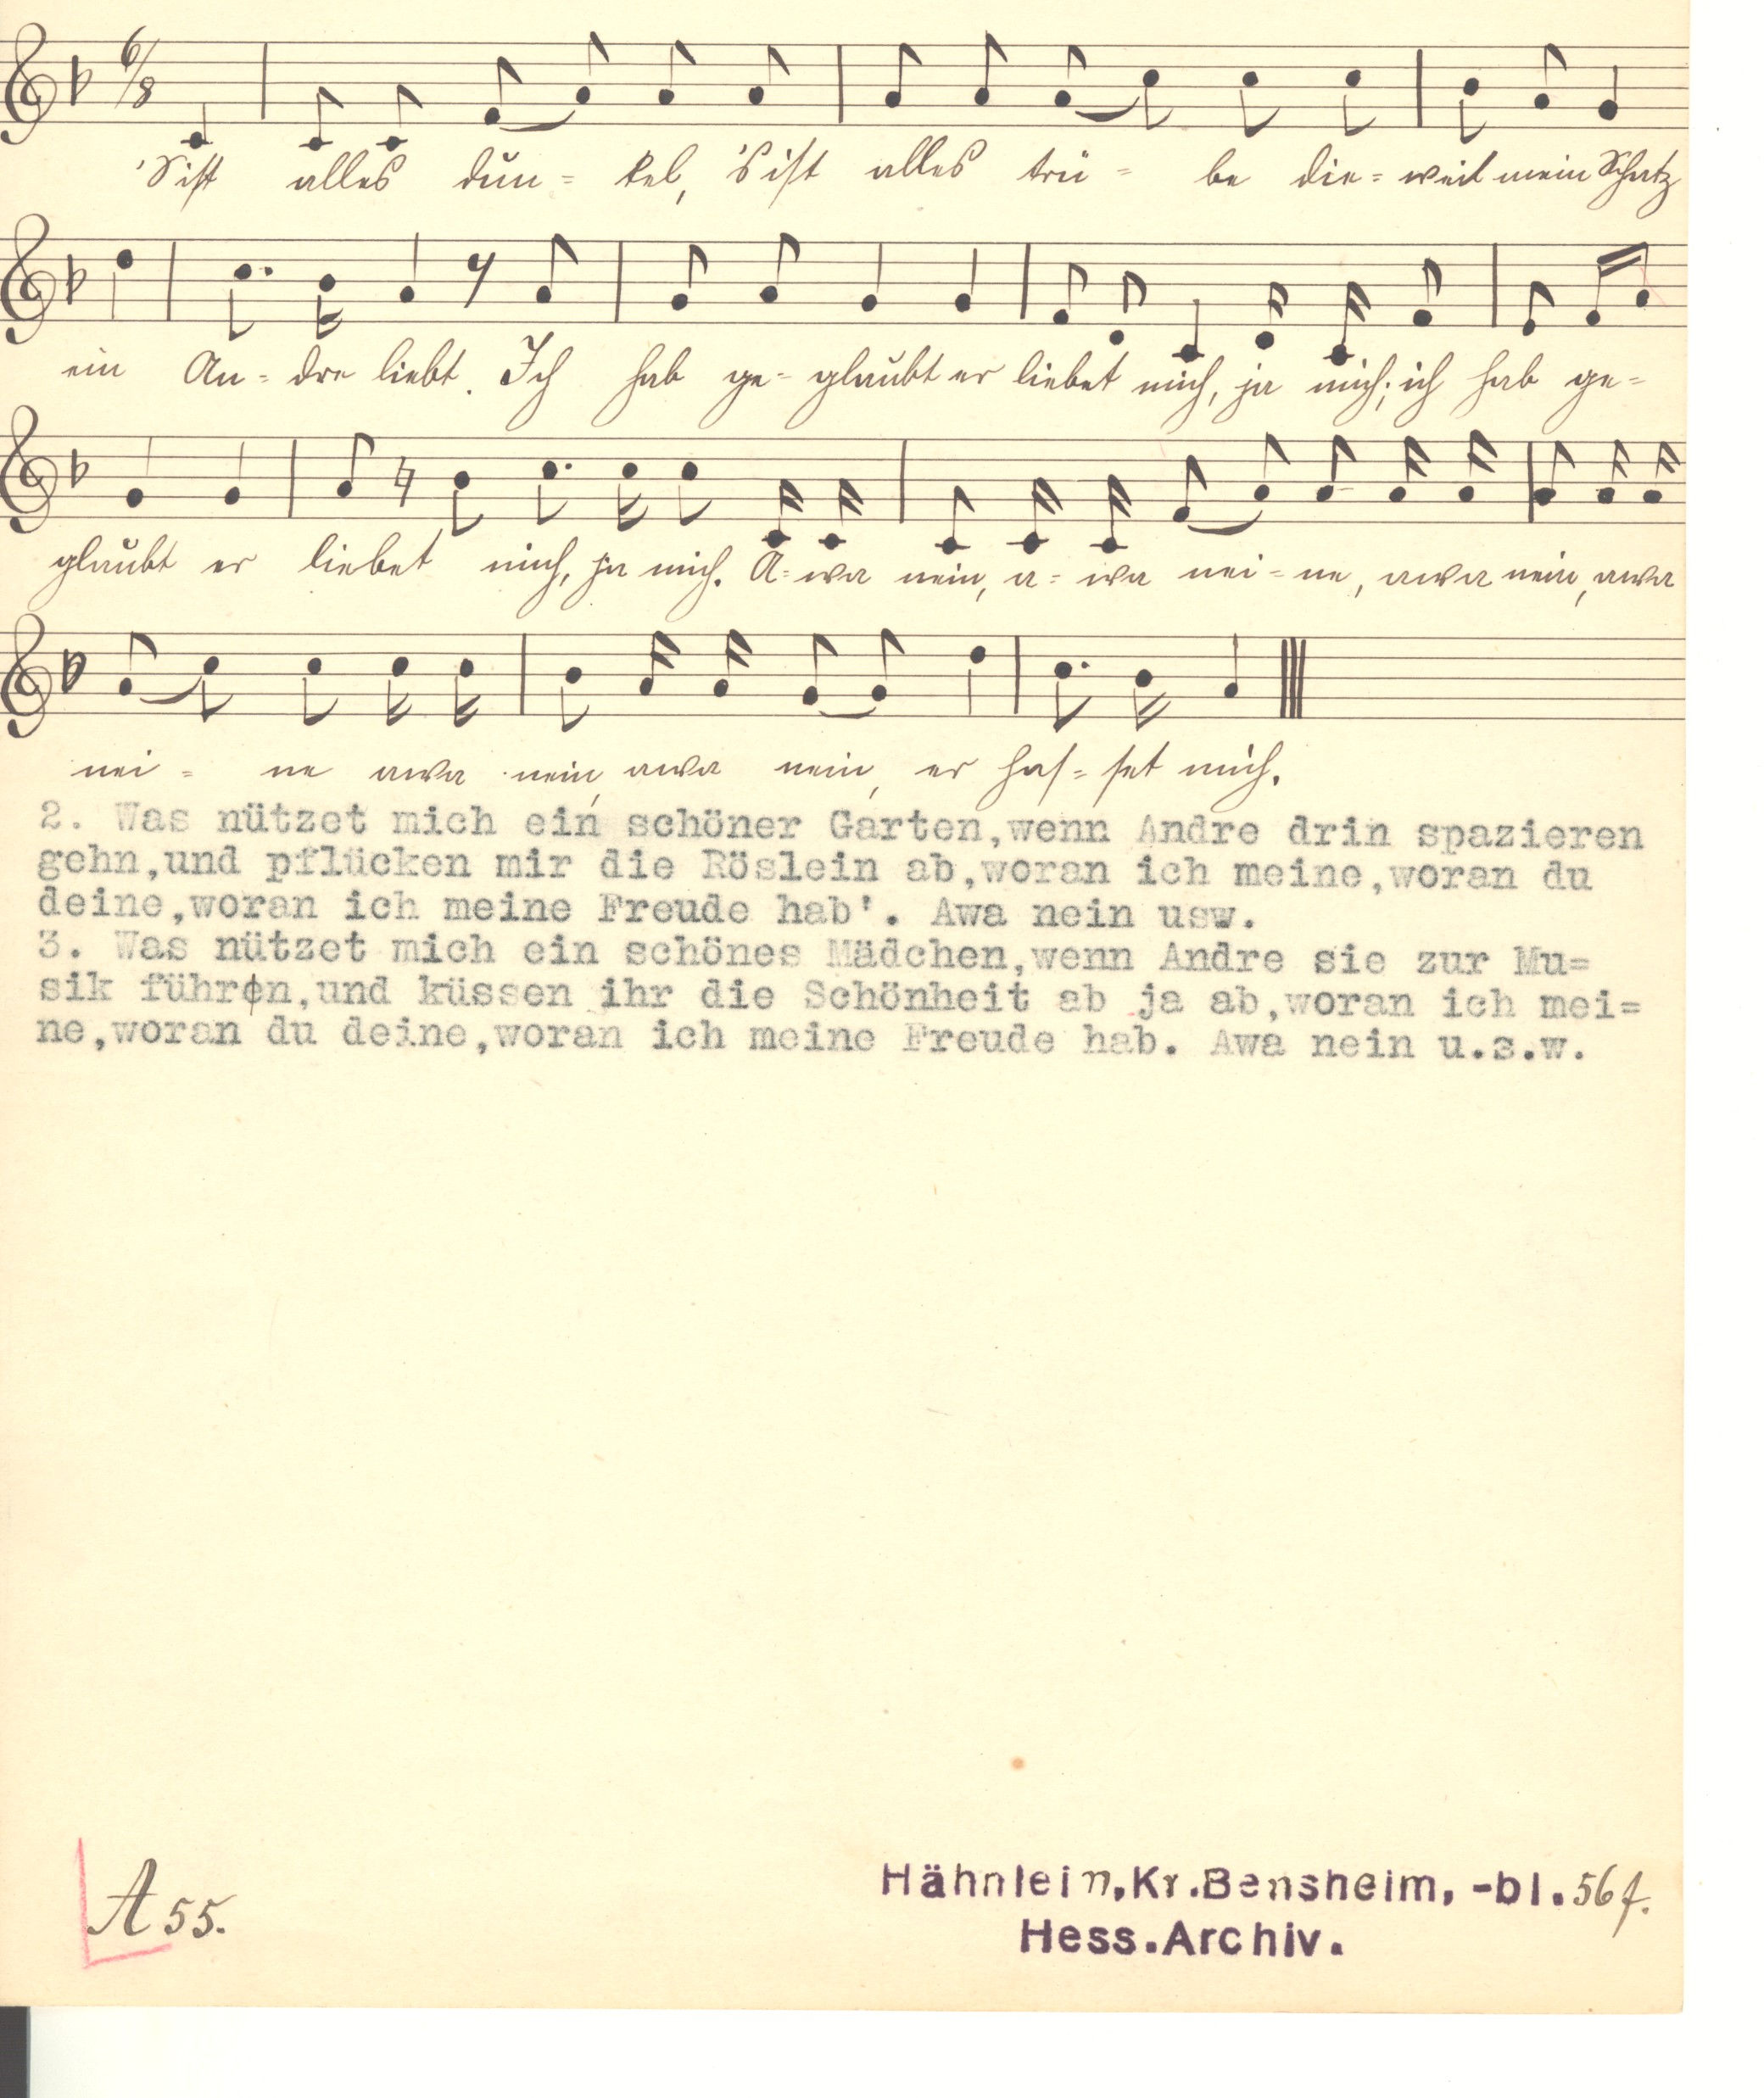 6/8
'S ist alles dun= kel, 's ist alles trü= be die= weil mein Schatz
ein An= dre liebt. Ich hab ge= glaubt er liebet mich, ja mich; ich hab ge=
glaubt er liebet mich, ja mich. A= wa nein, a= wa nei= ne, awa nein, awa
nei= ne awa nein, awa nein, er has= set mich.
2. Was nützet mich ein schöner Garten,wenn Andre drin spazieren
gehn,und pflücken mir die Röslein ab,woran ich meine,woran du
deine,woran ich meine Freude hab'. Awa nein usw.
3. Was nützet mich ein schönes Mädchen,wenn Andre sie zur Mu=
sik führen,und küssen ihr die Schönheit ab ja ab,woran ich mei=
ne,woran du deine,woran ich meine Freude hab. Awa nein u.s.w.
A 55.
Hähnlein,Kr.Bensheim, -bl. 56f.
Hess.Archiv.